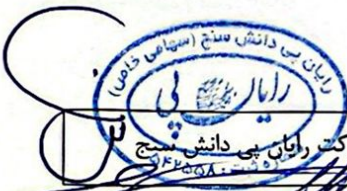 رایان پی دانش سنج (سهامی خاص)
رایان پی
شرکت رایان پی دانش سنج